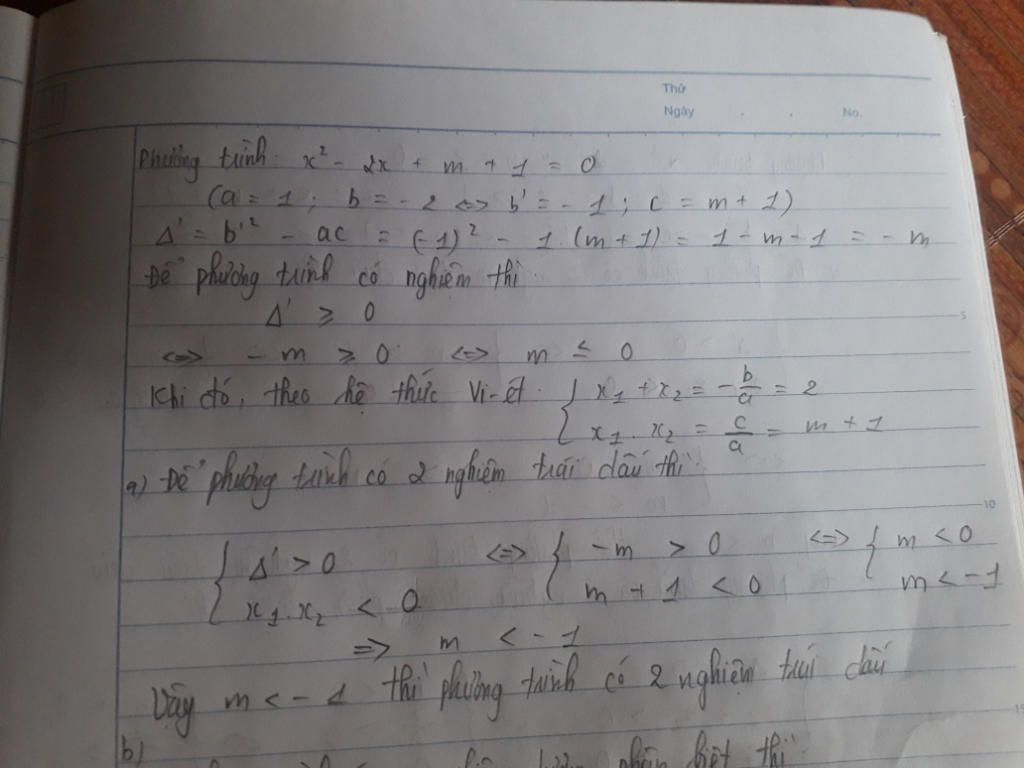 Thứ
Ngày . . No.
Phương trình: x² - 2x + m + 1 = 0
(a = 1 ; b = -2 <=> b' = -1 ; c = m + 1)
Δ' = b'² - ac = (-1)² - 1.(m+1) = 1 - m - 1 = -m
Để phương trình có nghiệm thì
Δ' ≥ 0
5
<=> -m ≥ 0 <=> m ≤ 0
Khi đó, theo hệ thức Vi-ét: { x₁ + x₂ = -b/a = 2
x₁ . x₂ = c/a = m + 1
a) Để phương trình có 2 nghiệm trái dấu thì:
10
{ Δ' > 0 <=> { -m > 0 <=> { m < 0
x₁.x₂ < 0 m + 1 < 0 m < -1
=> m < -1
Vậy m < -1 thì phương trình có 2 nghiệm trái dấu
b)
phân biệt thì